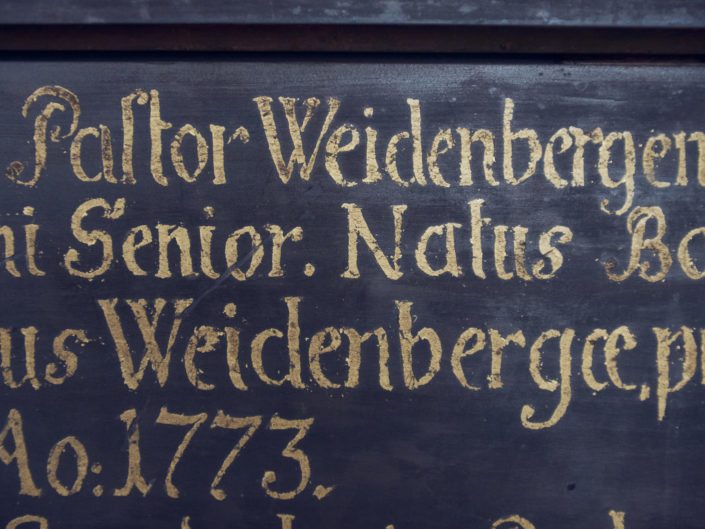 Paſtor Weidenbergen
ni Senior. Natus Ba
us Weidenbergæ. pr
Ao: 1773.